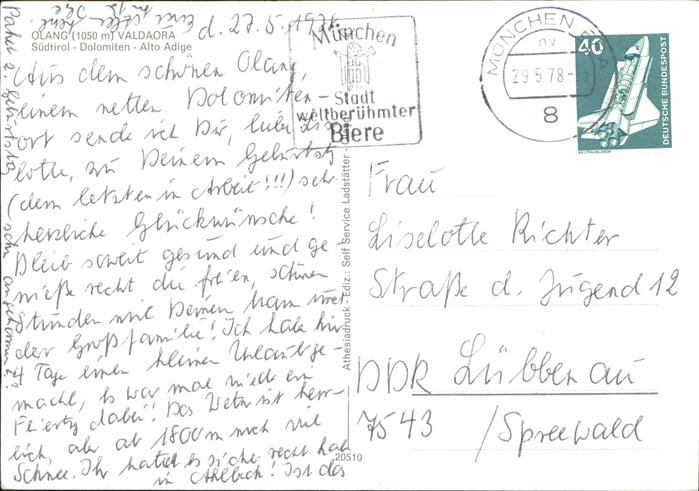 OLANG (1050 m) VALDAORA
Südtirol - Dolomiten - Alto Adige
d. 27.5.1978
Aus dem schönen Olang,
einem netten Dolomiten-
ort sende ich Dir, liebe Lise-
lotte, zu Deinem Geburtstg
(dem letzten in Arbeit!!!) sehr
herzliche Glückwünsche!
Bleib soweit gesund und ge-
nieße recht die freien, schönen
Stunden mit Deinem Mann und
der Großfamilie! Ich habe hier
4 Tage einen kleinen Urlaub ge-
macht, es war mal wieder ein
Feiertg dabei! Das Wetter ist herr-
lich, aber ab 1800 m noch viel
Schnee. Ihr hattet es sicher recht kalt
in Ahlbeck! Ist das
Paket z. Geburtstg
schon angekommen??
Athesiadruck - Ediz.: Self Service Ladstätter -
20510
München
Stadt
weltberühmter
Biere
MÜNCHEN
nv
29.5.78
8
40
DEUTSCHE BUNDESPOST
WELTRAUMLABOR
Frau
Liselotte Richter
Straße d. Jugend 12
DDR Lübbenau
7543 /Spreewald